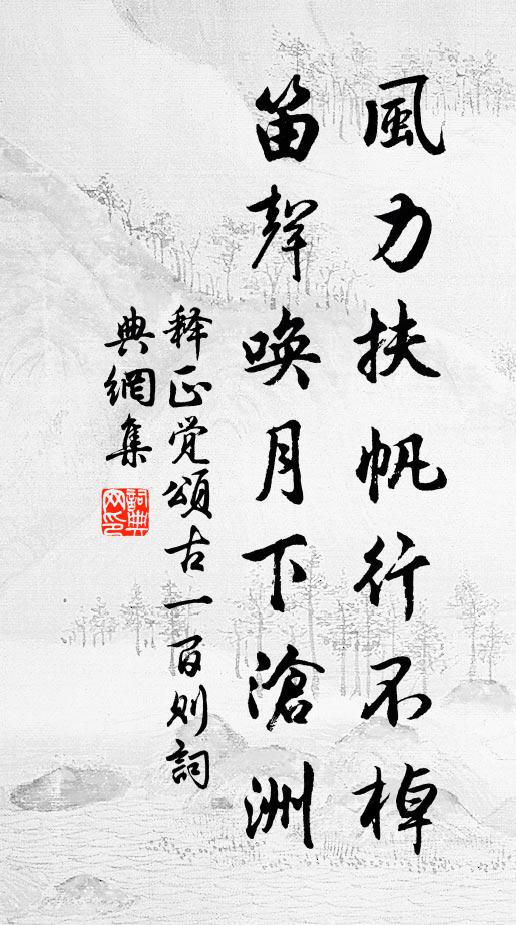 風力扶帆行不棹
笛聲喚月下滄洲
释正觉頌古一百则詞
典網集
詞典
网印